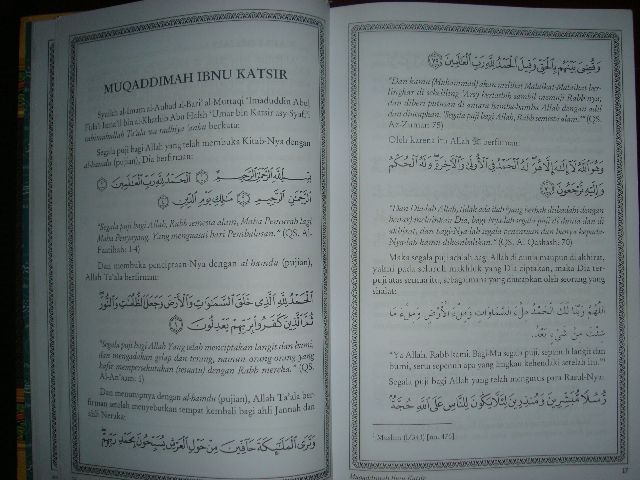 MUQADDIMAH IBNU KATSIR
Syaikh al-Imam al-Auhad al-Bari' al-Mutqaʼ 'Imaduddin Abul
Fida' Isma'il bin al-Khathib Abu Hafsh 'Umar bin Katsir asy-Syafi'i
rahimahullah Ta'ala wa radhiya 'anhu berkata:
Segala puji bagi Allah yang telah membuka Kitab-Nya dengan
al-hamdu (pujian), Dia berfirman:
بِسْمِ اللَّهِ الرَّحْمَٰنِ الرَّحِيمِ ۝ الْحَمْدُ لِلَّهِ رَبِّ الْعَالَمِينَ ۝
الرَّحْمَٰنِ الرَّحِيمِ ۝ مَالِكِ يَوْمِ الدِّينِ ۝
"Segala puji bagi Allah, Rabb semesta alam, Maha Pemurah lagi
Maha Penyayang. Yang menguasai hari Pembalasan." (QS. Al-
Faatihah: 1-4)
Dan membuka penciptaan-Nya dengan al hamdu (pujian),
Allah Ta'ala berfirman:
الْحَمْدُ لِلَّهِ الَّذِي خَلَقَ السَّمَاوَاتِ وَالْأَرْضَ وَجَعَلَ الظُّلُمَاتِ وَالنُّورَ
ثُمَّ الَّذِينَ كَفَرُوا بِرَبِّهِمْ يَعْدِلُونَ ۝
"Segala puji bagi Allah Yang telah menciptakan langit dan bumi,
dan mengadakan gelap dan terang, namun orang-orang yang
kafir mempersekutukan (sesuatu) dengan Rabb mereka." (QS.
Al-An'aam: 1)
Dan menutupnya dengan al-hamdu (pujian), Allah Ta'ala ber-
firman setelah menyebutkan tempat kembali bagi ahli Jannah dan
ahli Neraka:
وَتَرَى الْمَلَائِكَةَ حَافِّينَ مِنْ حَوْلِ الْعَرْشِ يُسَبِّحُونَ بِحَمْدِ رَبِّهِمْ
وَقُضِيَ بَيْنَهُم بِالْحَقِّ وَقِيلَ الْحَمْدُ لِلَّهِ رَبِّ الْعَالَمِينَ ۝
"Dan kamu (Muhammad) akan melihat Malaikat-Malaikat ber-
lingkar di sekeliling 'Arsy bertasbih sambil memuji Rabb-nya;
dan diberi putusan di antara hamba-hamba Allah dengan adil
dan diucapkan, "Segala puji bagi Allah, Rabb semesta alam." (QS.
Az-Zumar: 75)
Oleh karena itu Allah ﷻ berfirman:
وَهُوَ اللَّهُ لَا إِلَٰهَ إِلَّا هُوَ لَهُ الْحَمْدُ فِي الْأُولَىٰ وَالْآخِرَةِ وَلَهُ الْحُكْمُ
وَإِلَيْهِ تُرْجَعُونَ ۝
"Dan Dia-lah Allah, tidak ada ilah (yang berhak diibadahi dengan
benar) melainkan Dia, bagi-Nya-lah segala puji di dunia dan di
akhirat, dan bagi-Nya-lah segala penentuan dan hanya kepada-
Nya-lah kamu dikembalikan." (QS. Al Qashash: 70)
Maka segala puji adalah bagi Allah di dunia maupun di akhirat,
yakni pada seluruh makhluk yang Dia ciptakan, maka Dia ter-
puji atas semua itu, sebagaimana yang diucapkan oleh seorang yang
shalat:
اللَّهُمَّ رَبَّنَا لَكَ الْحَمْدُ مِلْءَ السَّمَاوَاتِ وَمِلْءَ الْأَرْضِ وَمِلْءَ مَا
شِئْتَ مِنْ شَيْءٍ بَعْدُ
"Ya Allah, Rabb kami, Bagi-Mu segala puji, sepenuh langit dan
bumi, serta sepenuh apa yang Engkau kehendaki setelah itu."¹
Segala puji bagi Allah yang telah mengutus para Rasul-Nya:
رُّسُلًا مُّبَشِّرِينَ وَمُنذِرِينَ لِئَلَّا يَكُونَ لِلنَّاسِ عَلَى اللَّهِ حُجَّةٌ
¹ Muslim (I/343) [no. 476]
Muqaddimah Ibnu Katsir
17